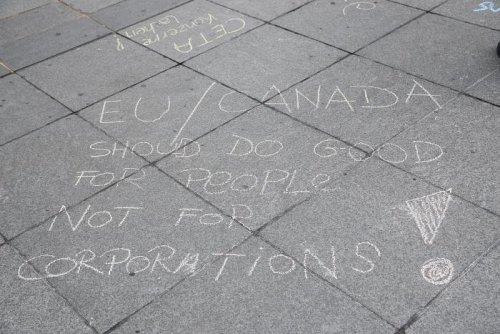 CETA
Konzerne
lachen!
EU/CANADA
SHOULD DO GOOD
FOR PEOPLE
NOT FOR
CORPORATIONS!